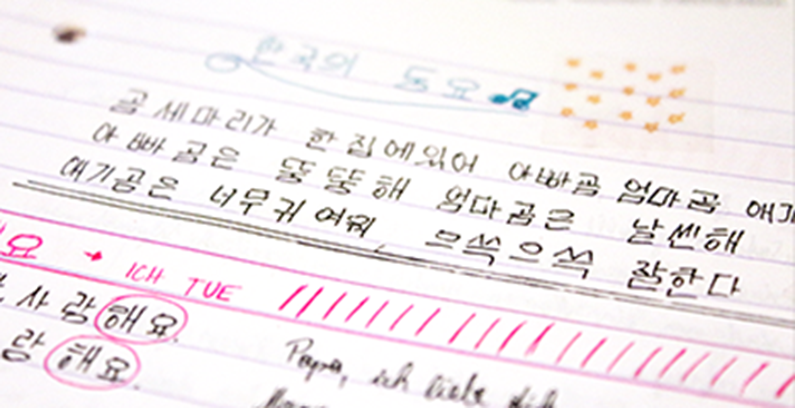 한국의 동요
곰 세마리가 한 집에있어 아빠곰 엄마곰 애기
아빠 곰은 뚱뚱해 엄마곰은 날씬해
애기곰은 너무귀여워, 으쓱으쓱 잘한다
요 → ICH TUE
사랑해요.
랑해요.
Papa, ich liebe dich